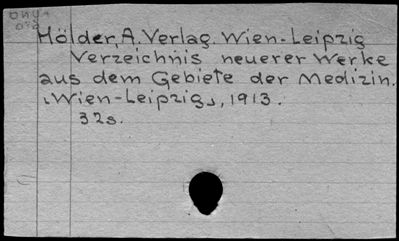 Hölder, A. Verlag. Wien-Leipzig
Verzeichnis neuerer Werke
aus dem Gebiete der Medizin.
⸤Wien-Leipzig⸥, 1913.
32s.